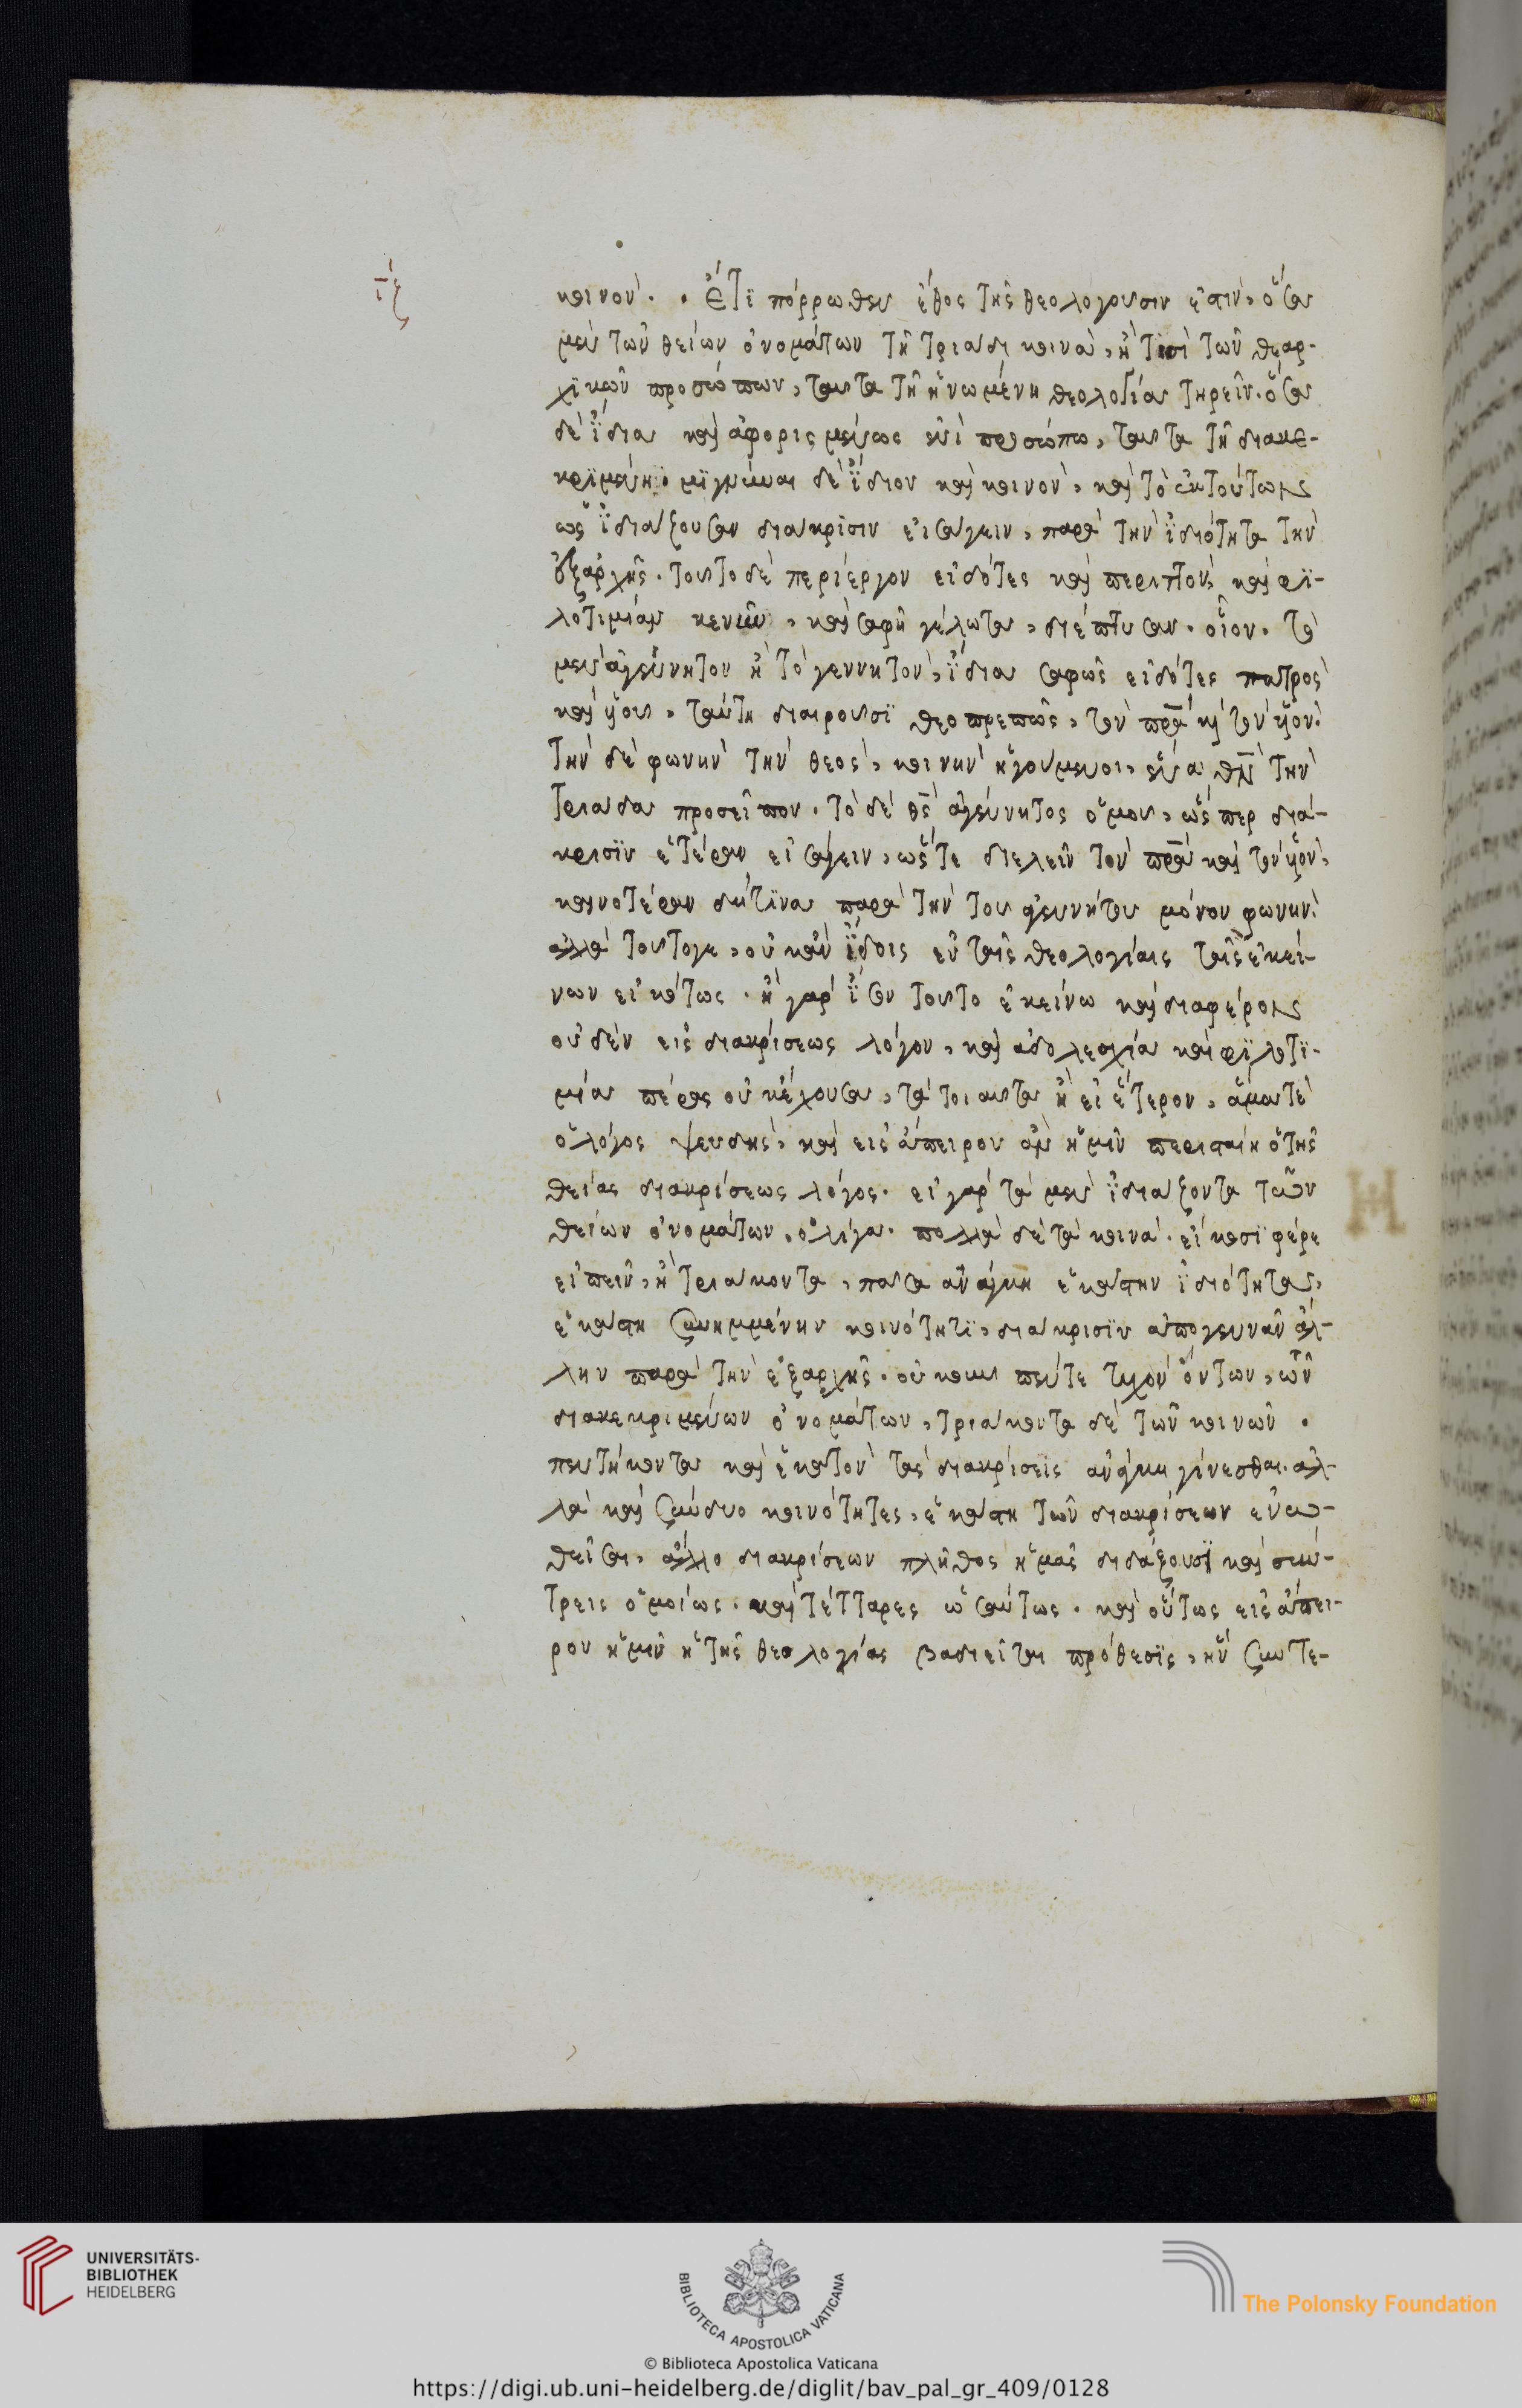 ιζ
κοινόν. Ἔτι πόρρωθεν ἔθος τῆς θεολογοῦσιν ἐστιν, ὅσα
μὲν τῶν θείων ὀνομάτων τῇ τριάδι κοινὰ, ἢ τισὶ τῶν θεαρ-
χικῶν προσώπων, ταῦτα τῇ ἡνωμένη θεολογία τηρεῖν. ὅσα
δὲ ἴδια καὶ ἀφορισμένως ἑνὶ προσώπω, ταῦτα τῇ διακε-
κριμένη. μιγνύναι δὲ ἴδιον καὶ κοινὸν, καὶ τὸ ἐκ τούτων
ὡς ἰδιάζουσαν διάκρισιν εἰσάγειν, παρὰ τὴν ἰδιότητα τὴν
ἐξαρχῆς. τοῦτο δὲ περίεργον εἰδότες καὶ περιττὸν, καὶ φι-
λοτιμίαν κενὴν, καὶ σαφῆ γέλωτα, διέπτυσαν. οἷον. τὸ
μὲν ἀγέννητον ἢ τὸ γεννητὸν, ἴδια σαφῶς εἰδότες πατρὸς
καὶ υἱοῦ, ταύτη διαιροῦσι θεοπρεπῶς, τὸν πρα καὶ τὸν υἱόν.
τὴν δὲ φωνὴν τὴν θεὸς, κοινὴν ἡγούμενοι, ἕνα θν τὴν
τριάδα προσεῖπον. τὸ δὲ θς ἀγέννητος ὁμοῦ, ὥσπερ διά-
κρισιν ἑτέραν εἰσάγειν, ὥστε διελεῖν τὸν πρα καὶ τὸν υἱόν,
καινοτέραν δή τινα παρὰ τὴν τοῦ ἀγεννήτου μόνου φωνὴν.
ἀλλὰ τοῦτό γε, οὐκ ἂν ἴδοις ἐν ταῖς θεολογίαις ταῖς ἐκεί-
νων εἰκότως. ἢ γὰρ ἴσον τοῦτο ἐκείνω καὶ διαφέρον
οὐδὲν εἰς διακρίσεως λόγον, καὶ ἀδολεσχία καὶ φιλοτι-
μία πέρας οὐκ ἔχουσα, τὰ τοιαῦτα ἢ εἰ ἕτερον, ἅμα τὲ
ὁ λόγος ψευδὴς, καὶ εἰς ἄπειρον ἂν ἡμῖν περισταίη ὁ τῆς
θείας διακρίσεως λόγος. εἰ γὰρ τὰ μὲν ἰδιάζοντα τῶν
θείων ὀνομάτων, ὀλίγα. πολλὰ δὲ τὰ κοινά. εἴκοσι φέρε
εἰπεῖν, ἢ τριάκοντα, πᾶσα ἀνάγκη ἑκάστην ἰδιότητα,
ἑκάστη συνημμένην κοινότητι, διάκρισιν ἀπογεννᾶν ἄλ-
λην παρὰ τὴν ἐξαρχῆς. οὐκοῦν πέντε τυχὸν ὄντων, τῶν
διακεκριμένων ὀνομάτων, τριάκοντα δὲ τῶν κοινῶν.
πεντήκοντα καὶ ἑκατὸν τὰς διακρίσεις ἀνάγκη γίνεσθαι. ἀλ-
λὰ καὶ σύνδυο κοινότητες, ἑκάστη τῶν διακρίσεων ἑνω-
θεῖσαι, ἄλλο διακρίσεων πλῆθος ἡμᾶς διδάξουσι καὶ σύν-
τρεις ὁμοίως. καὶ τέτταρες ὡσαύτως. καὶ οὕτως εἰς ἄπει-
ρον ἡμῖν ἡ τῆς θεολογίας βαδιεῖται πρόθεσις, ἣν συντε-
UNIVERSITÄTS-
BIBLIOTHEK
HEIDELBERG
BIBLIOTECA APOSTOLICA VATICANA
The Polonsky Foundation
© Biblioteca Apostolica Vaticana
https://digi.ub.uni-heidelberg.de/diglit/bav_pal_gr_409/0128